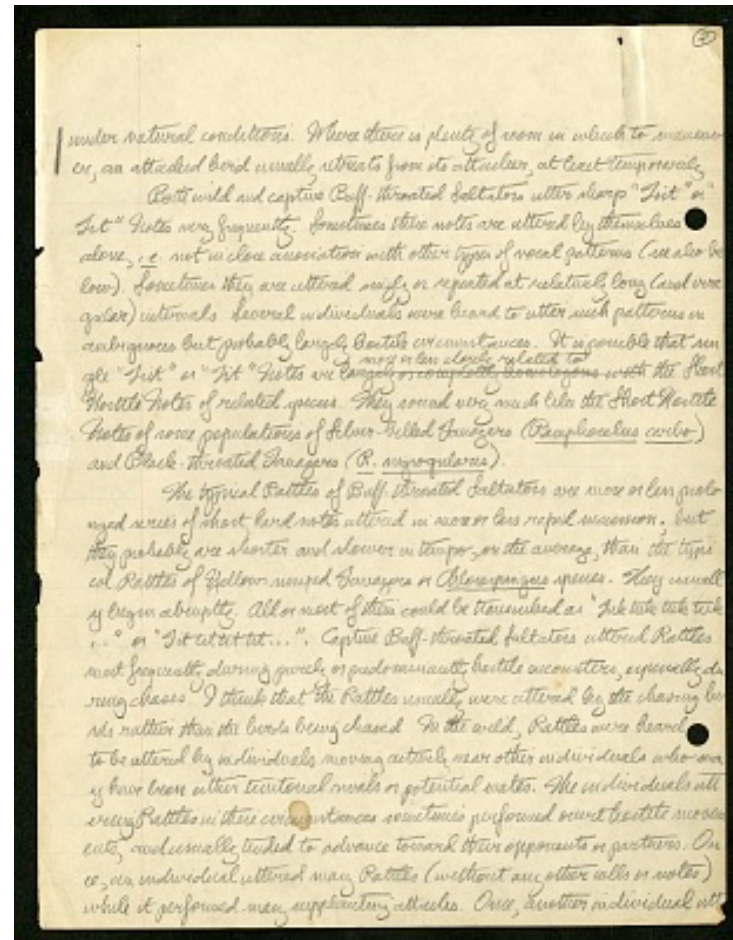 2
under natural conditions. Where there is plenty of room in which to maneuv-
er, an attacked bird usually retreats from its attacker, at least temporarily.
Both wild and captive Buff-throated Saltators utter sharp "Tsit" or "
Tit" Notes very frequently. Sometimes these notes are uttered by themselves
alone, i.e. not in close association with other types of vocal patterns (see also be
low). Sometimes they are uttered singly or repeated at relatively long (and irre
gular) intervals. Several individuals were heard to utter such patterns in
ambiguous but probably largely hostile circumstances. It is possible that sin
more or less closely related to
gle "Tsit" or "Tit" Notes are largely or completely homologous with the Short
Hostile Notes of related species. They sound very much like the Short Hostile
Notes of some populations of Silver-billed Tanagers (Ramphocelus carbo)
and Black-throated Tanagers (R. nigrogularis).
The typical Rattles of Buff-throated Saltators are more or less prolo
nged series of short hard notes uttered in more or less rapid succession, but
they probably are shorter and slower in tempo, on the average, than the typi
cal Rattles of Yellow-rumped Tanagers or Chlorospingus species. They usuall
y begin abruptly. All or most of them could be transcribed as "Tuk tuk tuk tuk
..." or "Tit tit tit tit...". Captive Buff-throated Saltators uttered Rattles
most frequently during purely or predominantly hostile encounters, especially du
ring chases. I think that the Rattles usually were uttered by the chasing bi
rds rather than the birds being chased. In the wild, Rattles were heard
to be uttered by individuals moving actively near other individuals who ma
y have been either territorial rivals or potential mates. The individuals utt
ering Rattles in these circumstances sometimes performed overt hostile movem
ents, and usually tended to advance toward their opponents or partners. On
ce, an individual uttered many Rattles (without any other calls or notes)
while it performed many supplanting attacks. Once, another individual utt